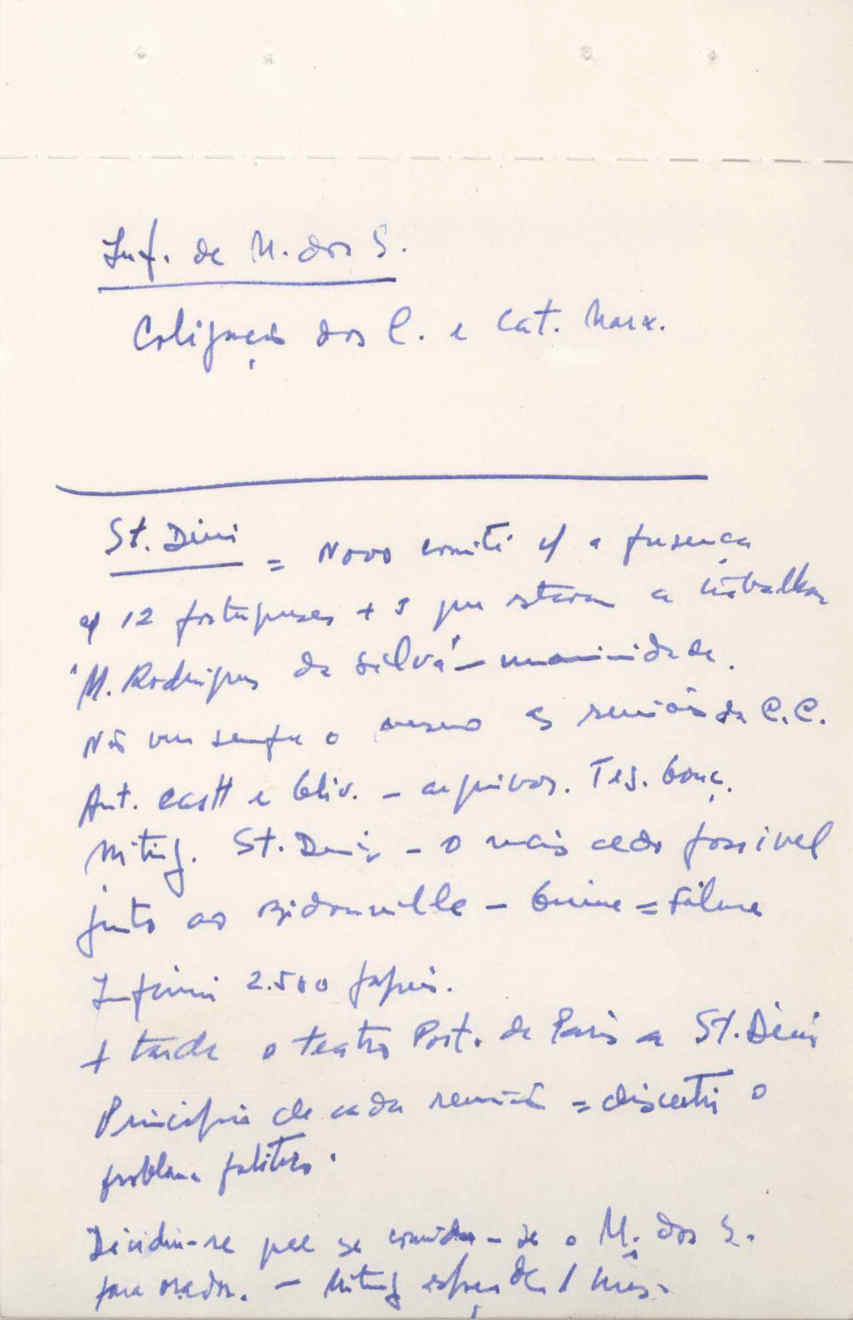 Inf. de M. dos S.
Coligação dos C. e Cat. Marx.
St. Denis = Novo comité c/ a presença
c/ 12 portugueses + 3 que estavam a trabalhar
"M. Rodrigues da Silva" – unanimidade.
Não vem sempre o mesmo às reuniões da C.C.
Ant. e Oliv. – arquivos. Tes. Gonç.
Miting. St. Denis – o mais cedo possível
junto ao bidonville – = filme
Imprimir 2.500 papéis.
+ tarde o teatro Port. de Paris a St. Denis
Princípio de cada reunião = discutir o
problema político.
Decidiu-se que se convidasse o M. dos S.
para orador. – Miting daí 1 mês.